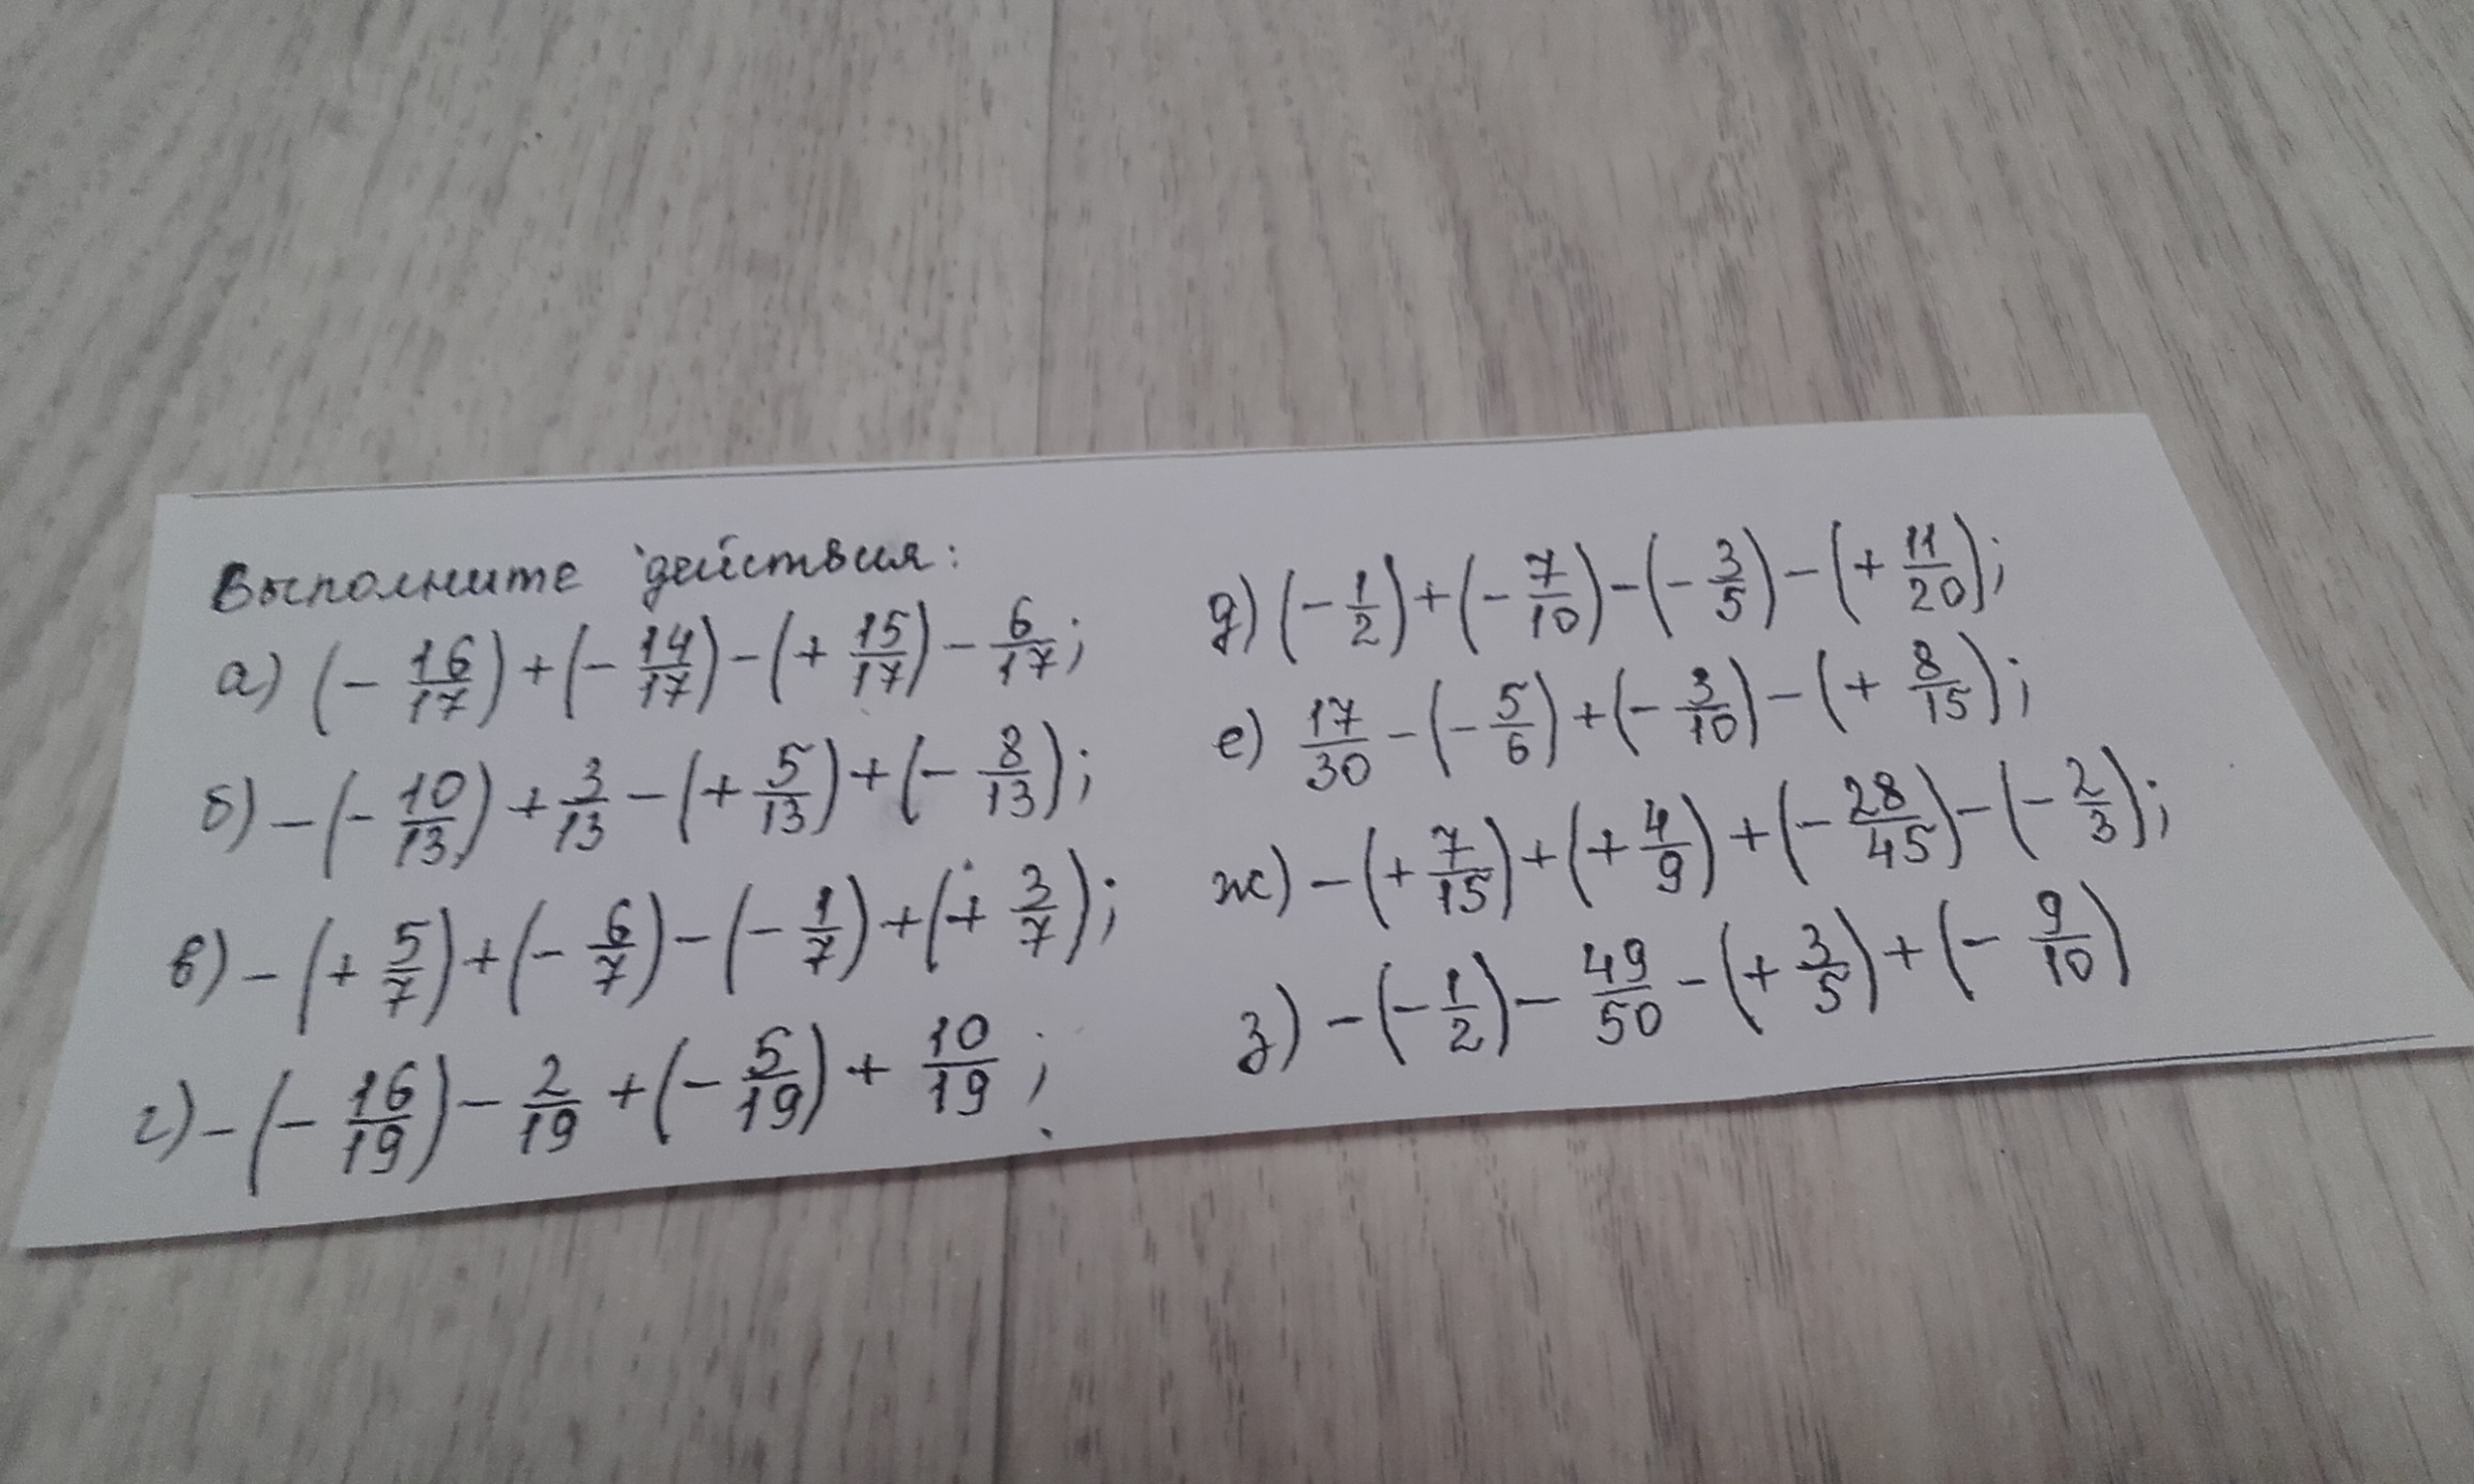 Выполните действия:
а) (- 16/17) + (- 14/17) - (+ 15/17) - 6/17;
б) - (- 10/13) + 3/13 - (+ 5/13) + (- 8/13);
в) - (+ 5/7) + (- 6/7) - (- 1/7) + (+ 3/7);
г) - (- 16/19) - 2/19 + (- 5/19) + 10/19;
д) (- 1/2) + (- 7/10) - (- 3/5) - (+ 11/20);
е) 17/30 - (- 5/6) + (- 3/10) - (+ 8/15);
ж) - (+ 7/15) + (+ 4/9) + (- 28/45) - (- 2/3);
з) - (- 1/2) - 49/50 - (+ 3/5) + (- 9/10)